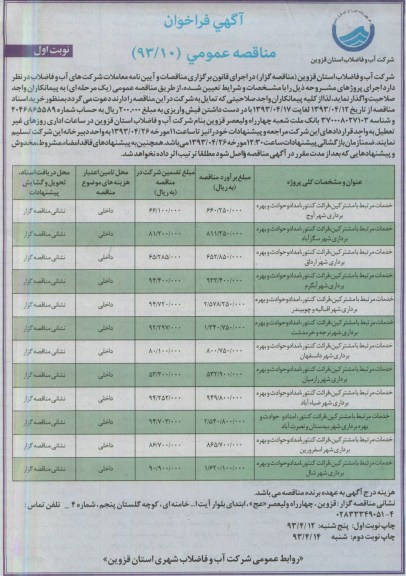 آگهي فراخوان
مناقصه عمومي (۹۳/۱۰)
نوبت اول
شرکت آب و فاضلاب استان قزوین
شرکت آب و فاضلاب استان قزوین (مناقصه گزار) در اجرای قانون برگزاری مناقصات و آیین نامه معاملات شرکت های آب و فاضلاب در نظر
دارد اجرای پروژهای مشروحه ذیل را با مشخصات و شرایط تعیین شده، از طریق مناقصه عمومی (یک مرحله ای) به پیمانکاران واجد
صلاحیت واگذار نماید. لذا از کلیه پیمانکاران واجد صلاحیتی که تمایل به شرکت در این مناقصه را دارند دعوت می گردد بمنظور خرید اسناد
مناقصه از تاریخ ۱۳۹۳/۰۴/۱۲ لغایت ۱۳۹۳/۰۴/۱۷ با در دست داشتن فیش واریزی به مبلغ ۲۰۰/۰۰۰ ریال به حساب شماره ۴۰۴۶۸۶۵۵۸۹
و شناسه ۳۷۰۰۰۸۰۲۷۱۰۳ بانک ملت شعبه چهارراه ولیعصر قزوین بنام شرکت آب و فاضلاب استان قزوین در ساعات اداری روزهای غیر
تعطیل به واحد قراردادهای این شرکت مراجعه و پیشنهادات خود را نیز تا ساعت ۱۱ مورخه ۱۳۹۳/۰۴/۲۶ به واحد دبیرخانه این شرکت تسلیم
نمایند. ضمناً زمان بازگشائی پیشنهادات ساعت ۱۲:۳۰ مورخه ۱۳۹۳/۰۴/۲۶ می باشد. همچنین به پیشنهادهای فاقد امضاء، مشروط، مخدوش
و پیشنهادهایی که بعد از مدت مقرر در آگهی مناقصه واصل شود مطلقا ترتیب اثر داده نخواهد شد.
عنوان و مشخصات کلی پروژه | مبلغ برآورد مناقصه (به ریال) | مبلغ تضمین شرکت در مناقصه (به ریال) | محل تامین اعتبار هزینه های موضوع مناقصه | محل دریافت اسناد، تحویل و گشایش پیشنهادات
خدمات مرتبط با مشترکین، قرائت کنتور، امداد و حوادث و بهره برداری شهر آوج | ۶۶۰/۲۵۰/۰۰۰ | ۶۶/۱۰۰/۰۰۰ | داخلی | نشانی مناقصه گزار
خدمات مرتبط با مشترکین، قرائت کنتور، امداد و حوادث و بهره برداری شهر سگز آباد | ۸۱۱/۲۵۰/۰۰۰ | ۸۱/۲۰۰/۰۰۰ | داخلی | نشانی مناقصه گزار
خدمات مرتبط با مشترکین، قرائت کنتور، امداد و حوادث و بهره برداری شهر ارداق | ۶۵۲/۸۵۰/۰۰۰ | ۶۵/۲۸۵/۰۰۰ | داخلی | نشانی مناقصه گزار
خدمات مرتبط با مشترکین، قرائت کنتور، امداد و حوادث و بهره برداری شهر آبگرم | ۹۴۳/۴۰۰/۰۰۰ | ۹۴/۴۰۰/۰۰۰ | داخلی | نشانی مناقصه گزار
خدمات مرتبط با مشترکین، قرائت کنتور، امداد و حوادث و بهره برداری شهر اقبالیه و چوبیندر | ۲/۵۷۸/۲۵۰/۰۰۰ | ۹۴/۷۲۰/۰۰۰ | داخلی | نشانی مناقصه گزار
خدمات مرتبط با مشترکین، قرائت کنتور، امداد و حوادث و بهره برداری شهر نرجه و خرمدشت | ۱/۳۴۰/۷۵۰/۰۰۰ | ۹۲/۲۹۷/۰۰۰ | داخلی | نشانی مناقصه گزار
خدمات مرتبط با مشترکین، قرائت کنتور، امداد و حوادث و بهره برداری شهر دانسفهان | ۸۰۰/۷۵۰/۰۰۰ | ۸۰/۱۰۰/۰۰۰ | داخلی | نشانی مناقصه گزار
خدمات مرتبط با مشترکین، قرائت کنتور، امداد و حوادث و بهره برداری شهر رازمیان | ۵۳۲/۹۰۰/۰۰۰ | ۵۳/۳۰۰/۰۰۰ | داخلی | نشانی مناقصه گزار
خدمات مرتبط با مشترکین، قرائت کنتور، امداد و حوادث و بهره برداری شهر ضیاء آباد | ۹۴۹/۸۰۰/۰۰۰ | ۹۴/۲۵۲/۰۰۰ | داخلی | نشانی مناقصه گزار
خدمات مرتبط با مشترکین، قرائت کنتور، امداد و حوادث و بهره برداری شهر بیدستان و نصرت آباد | ۲/۵۴۰/۸۰۰/۰۰۰ | ۹۴/۷۰۴/۰۰۰ | داخلی | نشانی مناقصه گزار
خدمات مرتبط با مشترکین، قرائت کنتور، امداد و حوادث و بهره برداری شهر اسفرورین | ۸۶۵/۷۰۰/۰۰۰ | ۸۶/۷۰۰/۰۰۰ | داخلی | نشانی مناقصه گزار
خدمات مرتبط با مشترکین، قرائت کنتور، امداد و حوادث و بهره برداری شهر شال | ۱/۶۲۰/۱۰۰/۰۰۰ | ۹۰/۹۰۰/۰۰۰ | داخلی | نشانی مناقصه گزار
هزینه درج آگهی به عهده برنده مناقصه می باشد.
نشانی مناقصه گزار: قزوین، چهارراه ولیعصر «عج»، ابتدای بلوار آیت ا... خامنه ای، کوچه گلستان پنجم، شماره ۴ _ تلفن تماس:
۰۲۸۳۳۳۴۹۰۵۱-۴
چاپ نوبت اول: پنج شنبه: ۹۳/۴/۱۲
چاپ نوبت دوم: شنبه ۹۳/۴/۱۴
«روابط عمومی شرکت آب و فاضلاب شهری استان قزوین»